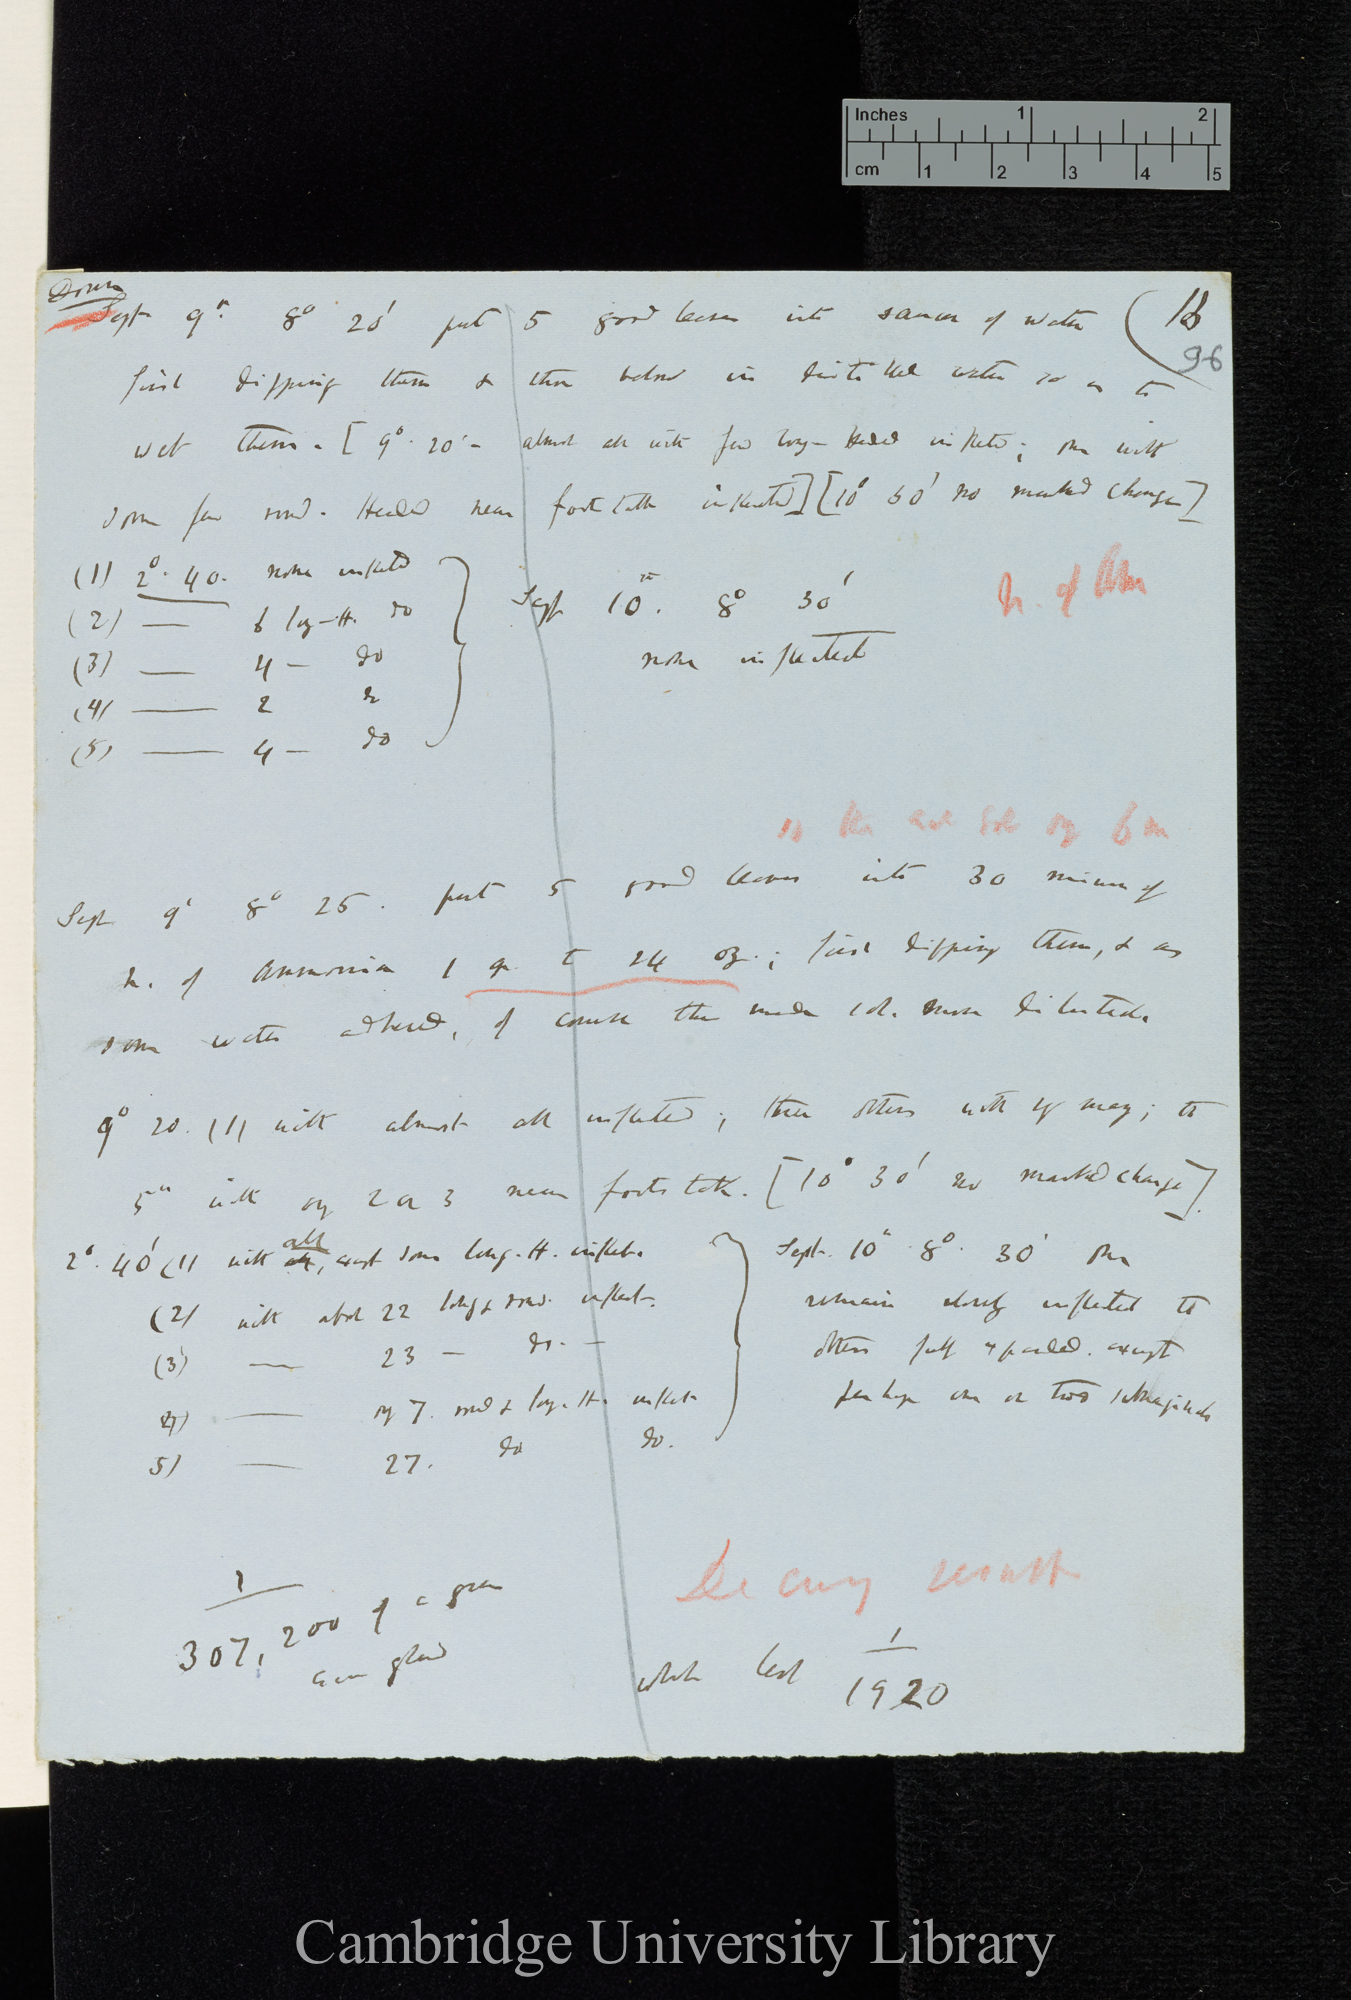 Inches 1 2
cm 1 2 3 4 5
Down
Sept 9th. 8° 20' put 5 good leaves into saucer of water (16
96
first dipping them & those below in distilled water so as to
wet them. [9°. 20' - almost all with few long-Headed inflected; one with
some few round-Headed near footstalk inflected] [10° 30' no marked change]
(1) 2°. 40. none inflected
(2) — 6 long-H. do
(3) — 4 — do
(4) — 2 do
(5) — 4 — do
Sept 10th. 8° 30'
none inflected
N. of Am
Sept 9' 8° 25. put 5 good leaves into 30 minims of
N. of Ammonia 1 gr. to 24 oz.; first dipping them, & as
some water adhered, of course this made sol. more diluted.
9° 20. (1) with almost all inflected; three others with very many; the
5th with only 2 or 3 near footstalk. [10° 30' no marked change]
2°. 40' (1) with all, except some long-H. inflect.
(2) with about 22 long & round inflect.
(3) — 23 — do. —
4) — only 7. round & long-H. inflect.
5) — 27. do do.
Sept. 10th 8°. 30' One
remains closely inflected the
others fully expanded. except
perhaps one or two submarginals
1
307,200 of a grain
each gland
whole leaf 1
1920
Cambridge University Library